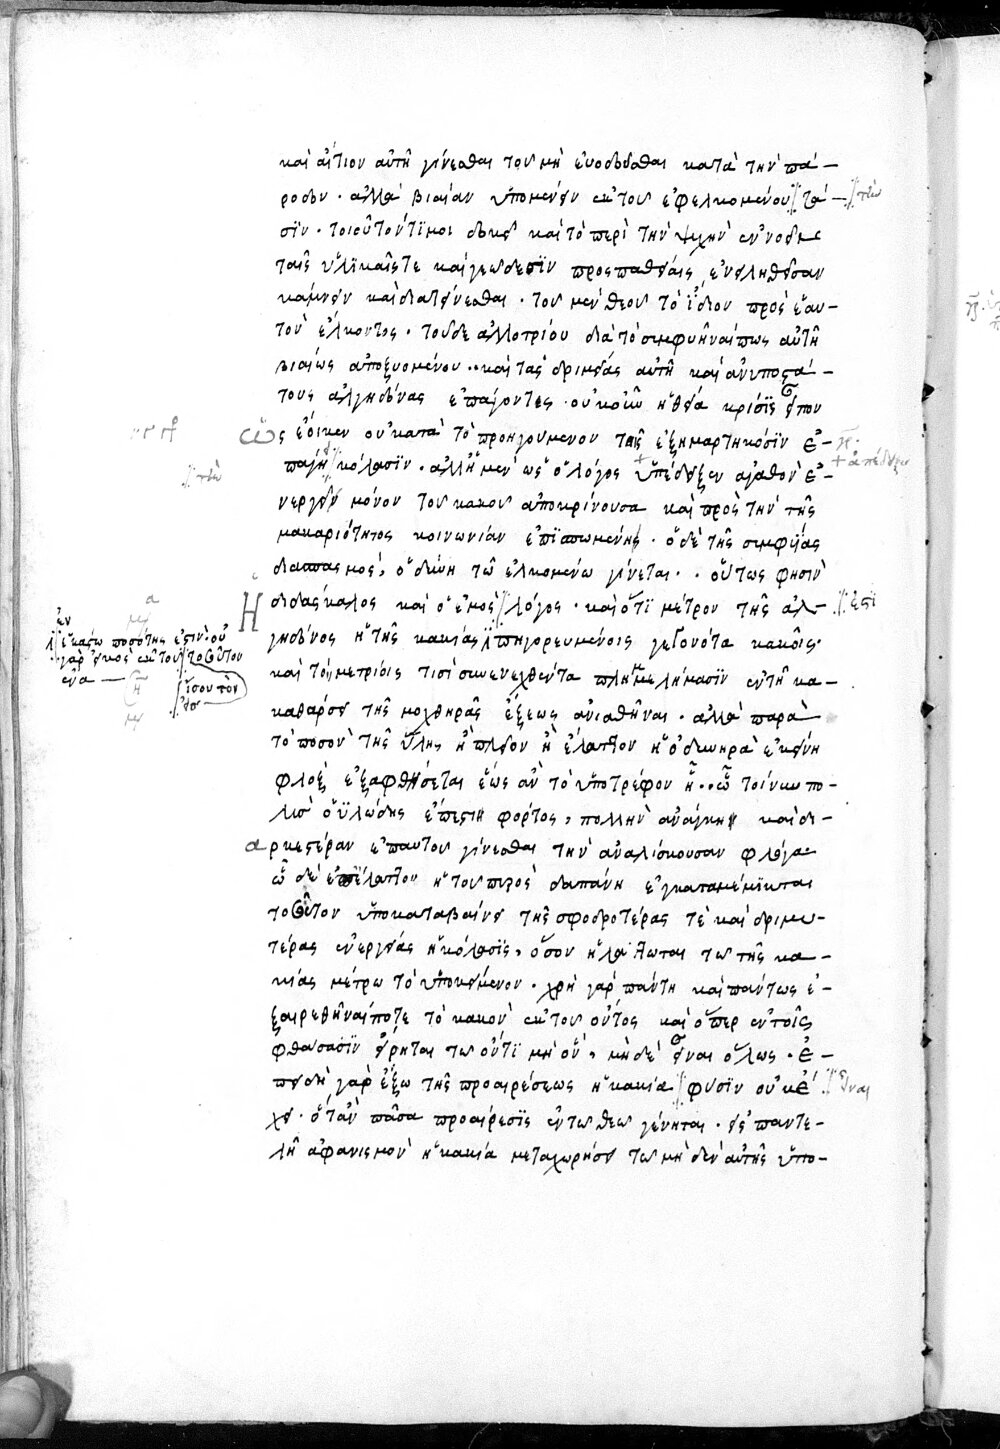 καὶ αἴτιον αὐτῆ γίνεσθαι τοῦ μὴ εὐοδοῦσθαι κατὰ τὴν πά-
ροδον · ἀλλὰ βιαίαν ὑπομένειν ἐκ τοῦ ἐφελκομένου τά-
σϊν · τοιοῦτόν τί μοι δοκεῖ καὶ τὸ περὶ τὴν ψυχὴν
ταῖς ὑλϊκαῖς τε καὶ γεώδεσϊν προσπαθείαις ἐνειληθεῖσαν
κάμνειν καὶ διατείνεσθαι · τοῦ μὲν θεοῦ τὸ ἴδιον πρὸς ἑαυ-
τὸν ἕλκοντος · τοῦ δὲ ἀλλοτρίου διὰ τὸ συμφυῆναί πως αὐτῆ
βιαίως ἀποξυομένου ·· καὶ τὰς δριμείας αὐτῆ καὶ ἀνυποστά-
τους ἀλγηδόνας ἐπάγοντες · οὐκοῦν ἡ θεία κρίσϊς εἶπον
ὡς ἔοικεν οὐ κατὰ τὸ προηγούμενον τοῖς ἐξημαρτηκόσϊν ἐ-
πάγει κόλασϊν · ἀλλ' ἡ μὲν ὡς ὁ λόγος ὑπέδειξεν ἀγαθὸν ἐ-
νεργεῖ μόνον τοῦ κακοῦ ἀποκρίνουσα καὶ πρὸς τὴν τῆς
μακαριότητος κοινωνίαν ἐπϊσπωμένη · ὁ δὲ τῆς συμφυΐας
διασπασμὸς, ὀδύνη τῶ ἑλκομένω γίνεται · · οὕτως φησὶν
ἡ διδάσκαλος καὶ ὁ ἐμὸς λόγος · καὶ ὅτϊ μέτρον τῆς ἀλ-
γηδόνος ἡ τῆς κακίας
καὶ τοῖς μετρίοις τισὶ συνενεχθέντα πλημμελήμασϊν ἐν τῆ κα-
καθάρσει τῆς μοχθηρᾶς ἕξεως ἀνιαθῆναι · ἀλλὰ παρὰ
τὸ ποσὸν τῆς ὕλης ἢ πλεῖον ἢ ἔλαττον ἡ ὀδυνηρὰ ἐκείνη
φλὸξ ἐξαφθήσεται ἕως ἂν τὸ ὑποτρέφον ἦ ·· ὧ τοίνυν πο-
λὺς ὁ ὑλώδης ἔπεστιν φόρτος, πολλὴν ἀνάγκη καὶ δι-
αρκεστέραν ἐπ' αὐτοῦ γίνεσθαι τὴν ἀναλίσκουσαν φλόγα
ὧ δὲ ἐπ' ἔλαττον ἡ τοῦ πυρὸς δαπάνη ἐγκαταμέμϊκται
τοσοῦτον ὑποκαταβαίνει τῆς σφοδροτέρας τὲ καὶ δριμυ-
τέρας ἐνεργείας ἡ κόλασϊς, ὅσον ἠλάττωται τῶ τῆς κα-
κίας μέτρω τὸ ὑποκείμενον · χρὴ γὰρ πάντη καὶ πάντως ἐ-
ξαιρεθῆναί ποτε τὸ κακὸν ἐκ τοῦ ὄντος καὶ ὅπερ ἐν τοῖς
φθάσασϊν εἴρηται τὸ ὄντϊ μὴ ὂν, μὴ δὲ εἶναι ὅλως · ἐ-
πειδὴ γὰρ ἔξω τῆς προαιρέσεως ἡ κακία φύσϊν οὐκ ἔ-
χει · ὅταν πᾶσα προαίρεσϊς ἐν τῶ θεῶ γένηται · εἰς παντε-
λῆ ἀφανισμὸν ἡ κακία μεταχωρήσει τῶ μὴ δὲν αὐτῆς ὑπο-
τὴν
τὴν
ἀπέδειξεν
ἐπὶ
εἶναι
ἐν
ἑκάστω ποσότης ἐστίν· οὐ
γὰρ εἰκὸς ἐκ τοῦ τοσοῦτον
ἴσου τὸν